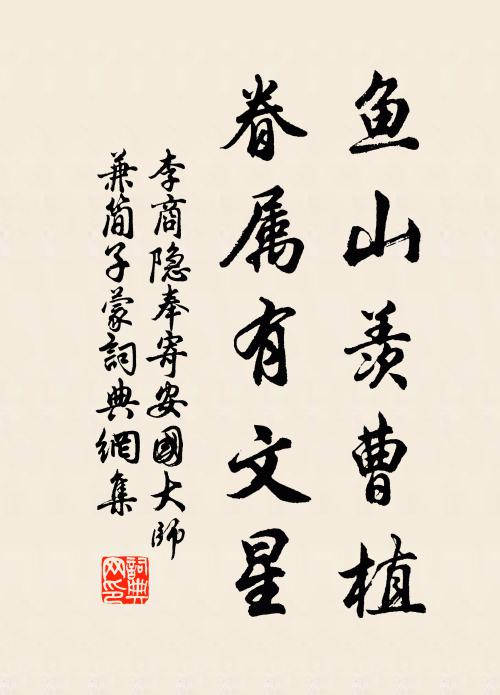 鱼山羡曹植
眷属有文星
李商隐奉寄安國大师
兼简子蒙詞典網集
詞典
网印